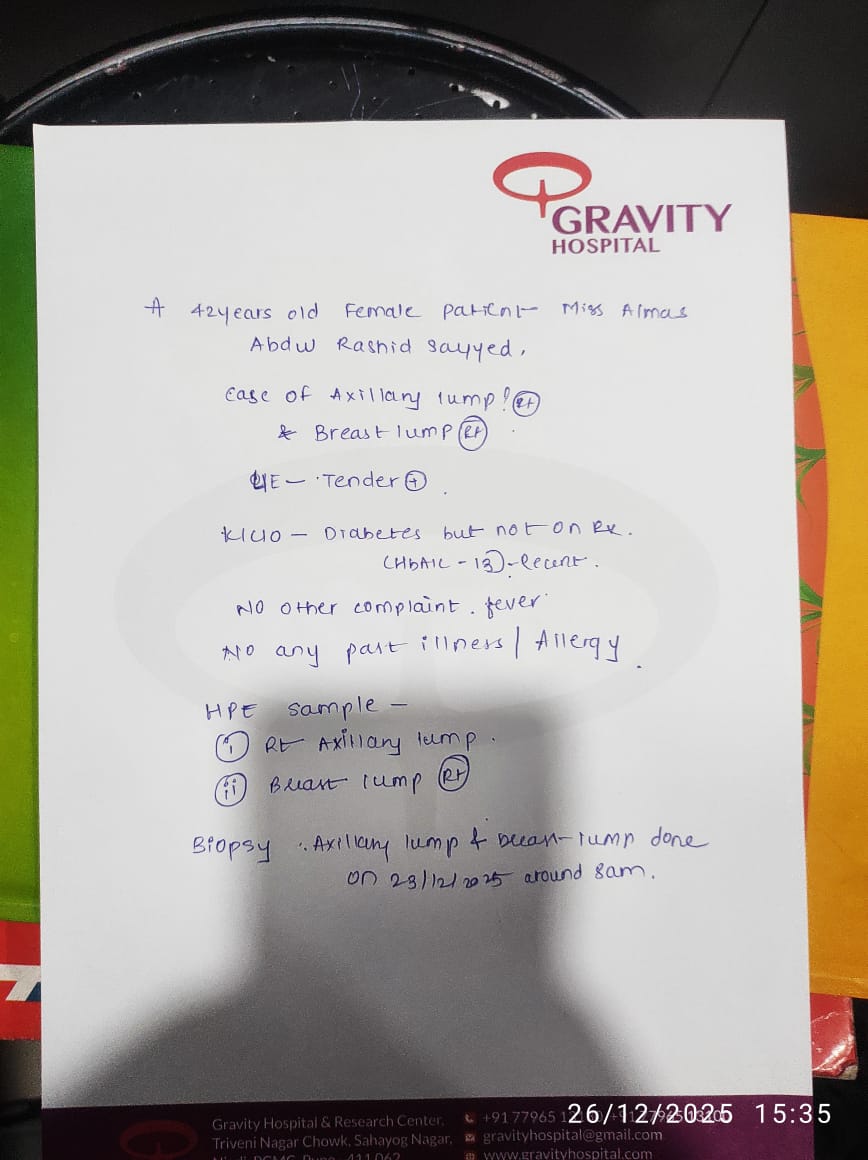 GRAVITY
HOSPITAL
A 42years old Female patient Miss Almas
Abdul Rashid Sayyed,
Case of Axillary lump? Rt
& Breast lump Rt
L/E - Tender +
K/C/O - Diabetes but not on Rx.
(HbA1C - 13) - Recent.
NO other complaint. fever
NO any past illness / Allergy.
HPE sample -
(i) Rt Axillary lump.
(ii) Breast lump Rt
Biopsy :. Axillary lump & breast lump done
on 23/12/2025 around 8am.
Gravity Hospital & Research Center,
Triveni Nagar Chowk, Sahayog Nagar,
411 062
+91 77965
gravityhospital@gmail.com
www.gravityhospital.com
26/12/2025 15:35